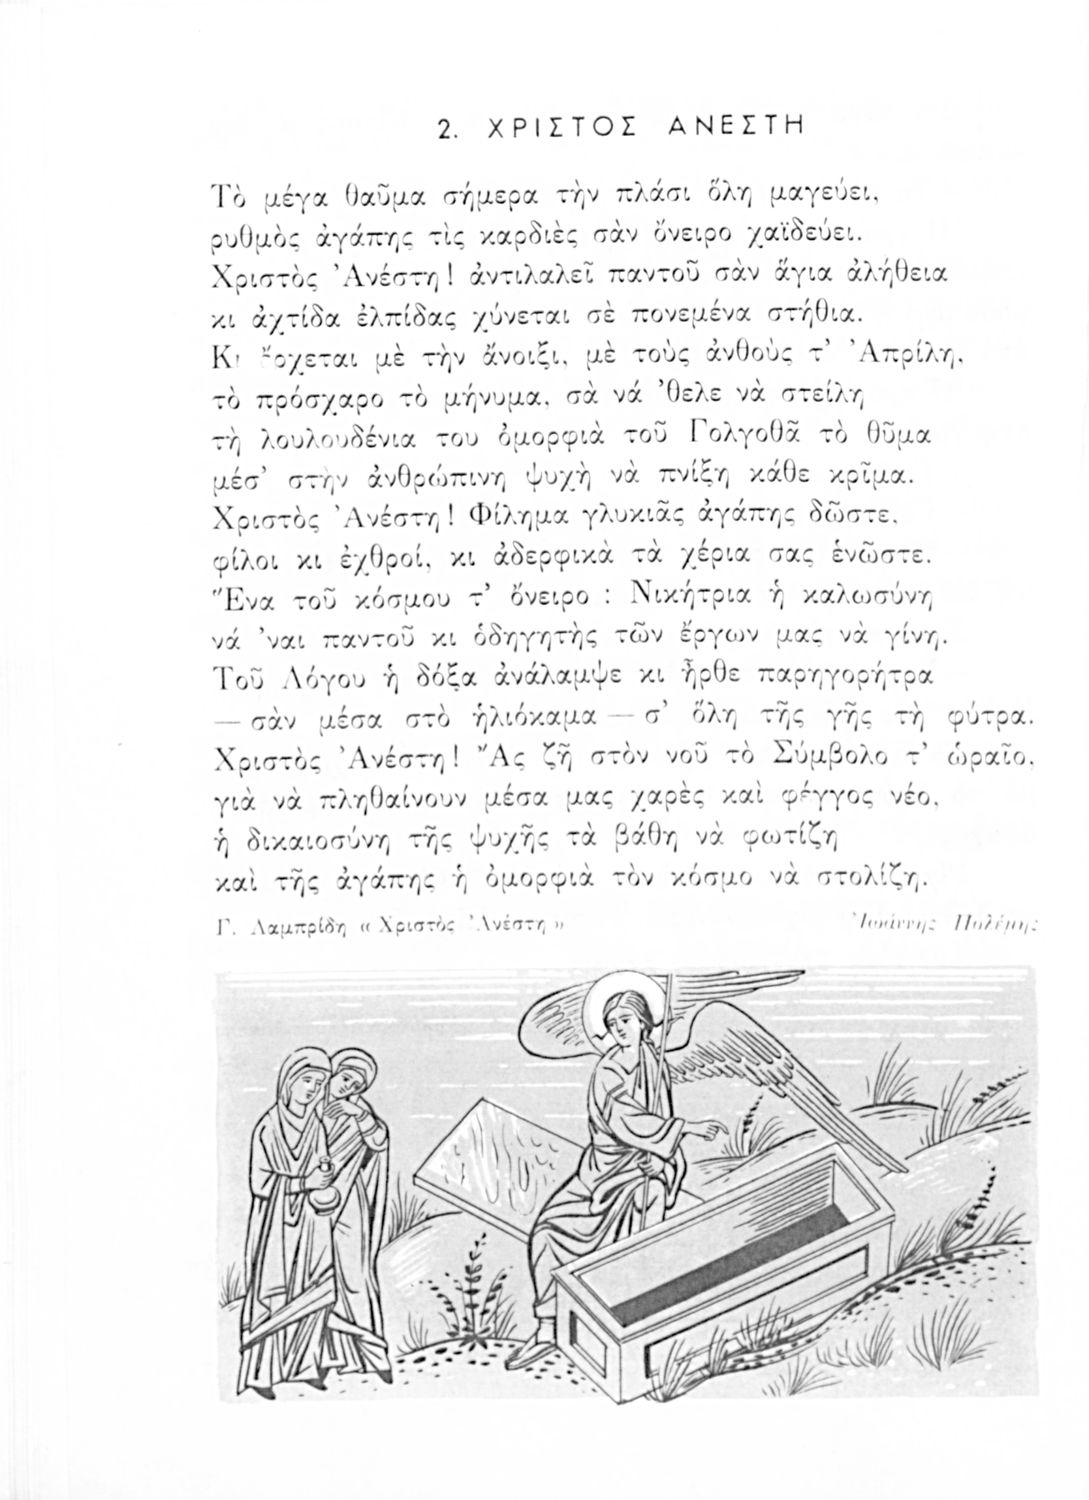 2. ΧΡΙΣΤΟΣ ΑΝΕΣΤΗ
Τὸ μέγα θαῦμα σήμερα τὴν πλάσι ὅλη μαγεύει,
ρυθμὸς ἀγάπης τὶς καρδιὲς σὰν ὄνειρο χαϊδεύει.
Χριστὸς Ἀνέστη! ἀντιλαλεῖ παντοῦ σὰν ἅγια ἀλήθεια
κι ἀχτίδα ἐλπίδας χύνεται σὲ πονεμένα στήθια.
Κι ἔρχεται μὲ τὴν ἄνοιξι, μὲ τοὺς ἀνθοὺς τ' Ἀπρίλη,
τὸ πρόσχαρο τὸ μήνυμα, σὰ νά 'θελε νὰ στείλη
τὴ λουλουδένια του ὀμορφιὰ τοῦ Γολγοθᾶ τὸ θῦμα
μέσ' στὴν ἀνθρώπινη ψυχὴ νὰ πνίξη κάθε κρῖμα.
Χριστὸς Ἀνέστη! Φίλημα γλυκιᾶς ἀγάπης δῶστε,
φίλοι κι ἐχθροί, κι ἀδερφικὰ τὰ χέρια σας ἑνῶστε.
Ἕνα τοῦ κόσμου τ' ὄνειρο : Νικήτρια ἡ καλωσύνη
νά 'ναι παντοῦ κι ὁδηγητὴς τῶν ἔργων μας νὰ γίνη.
Τοῦ Λόγου ἡ δόξα ἀνάλαμψε κι ἦρθε παρηγορήτρα
— σὰν μέσα στὸ ἡλιόκαμα — σ' ὅλη τῆς γῆς τὴ φύτρα.
Χριστὸς Ἀνέστη! Ἄς ζῆ στὸν νοῦ τὸ Σύμβολο τ' ὡραῖο,
γιὰ νὰ πληθαίνουν μέσα μας χαρὲς καὶ φέγγος νέο,
ἡ δικαιοσύνη τῆς ψυχῆς τὰ βάθη νὰ φωτίζη
καὶ τῆς ἀγάπης ἡ ὀμορφιὰ τὸν κόσμο νὰ στολίζη.
Γ. Λαμπρίδη « Χριστὸς Ἀνέστη »
Ἰωάννης Πολέμης